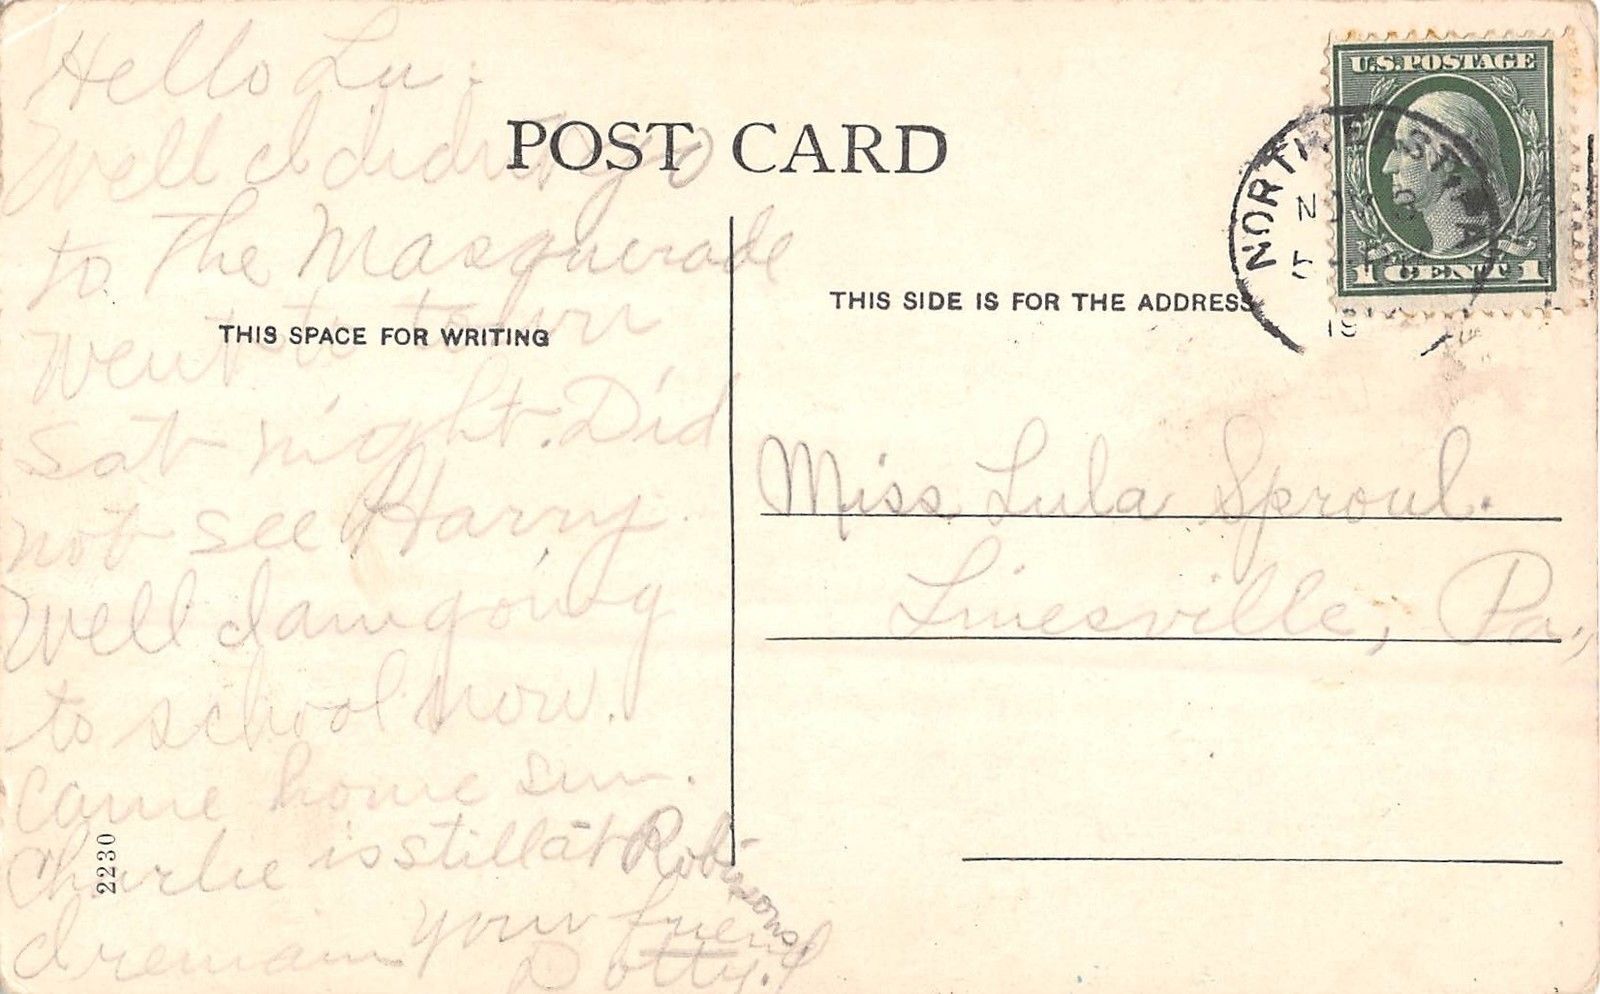 Hello Lu.
Well I didn't go
to The Masquerade
went to town
Sat night. Did
not see Harry.
Well I am going
to school now.
Came home Sun.
Charlie is still at Robinsons.
I remain your friend
Dotty.
POST CARD
THIS SPACE FOR WRITING
2230
THIS SIDE IS FOR THE ADDRESS
U.S. POSTAGE
1 CENT 1
NORTH EAST, PA
NOV
5
19
Miss Lula Sproul.
Linesville, Pa.,